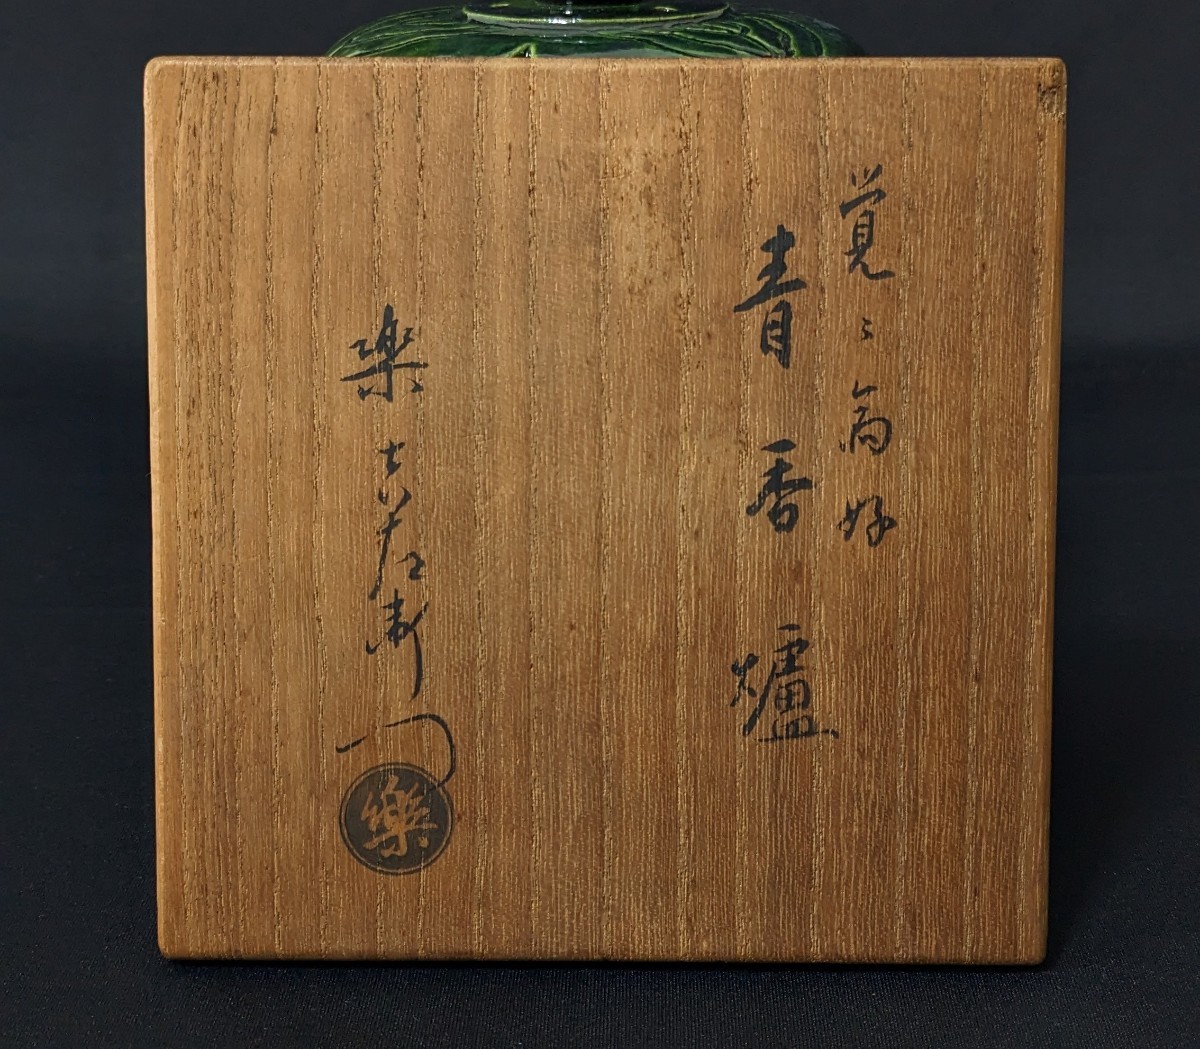 覚々斎好
青香爐
楽吉左衛門
樂